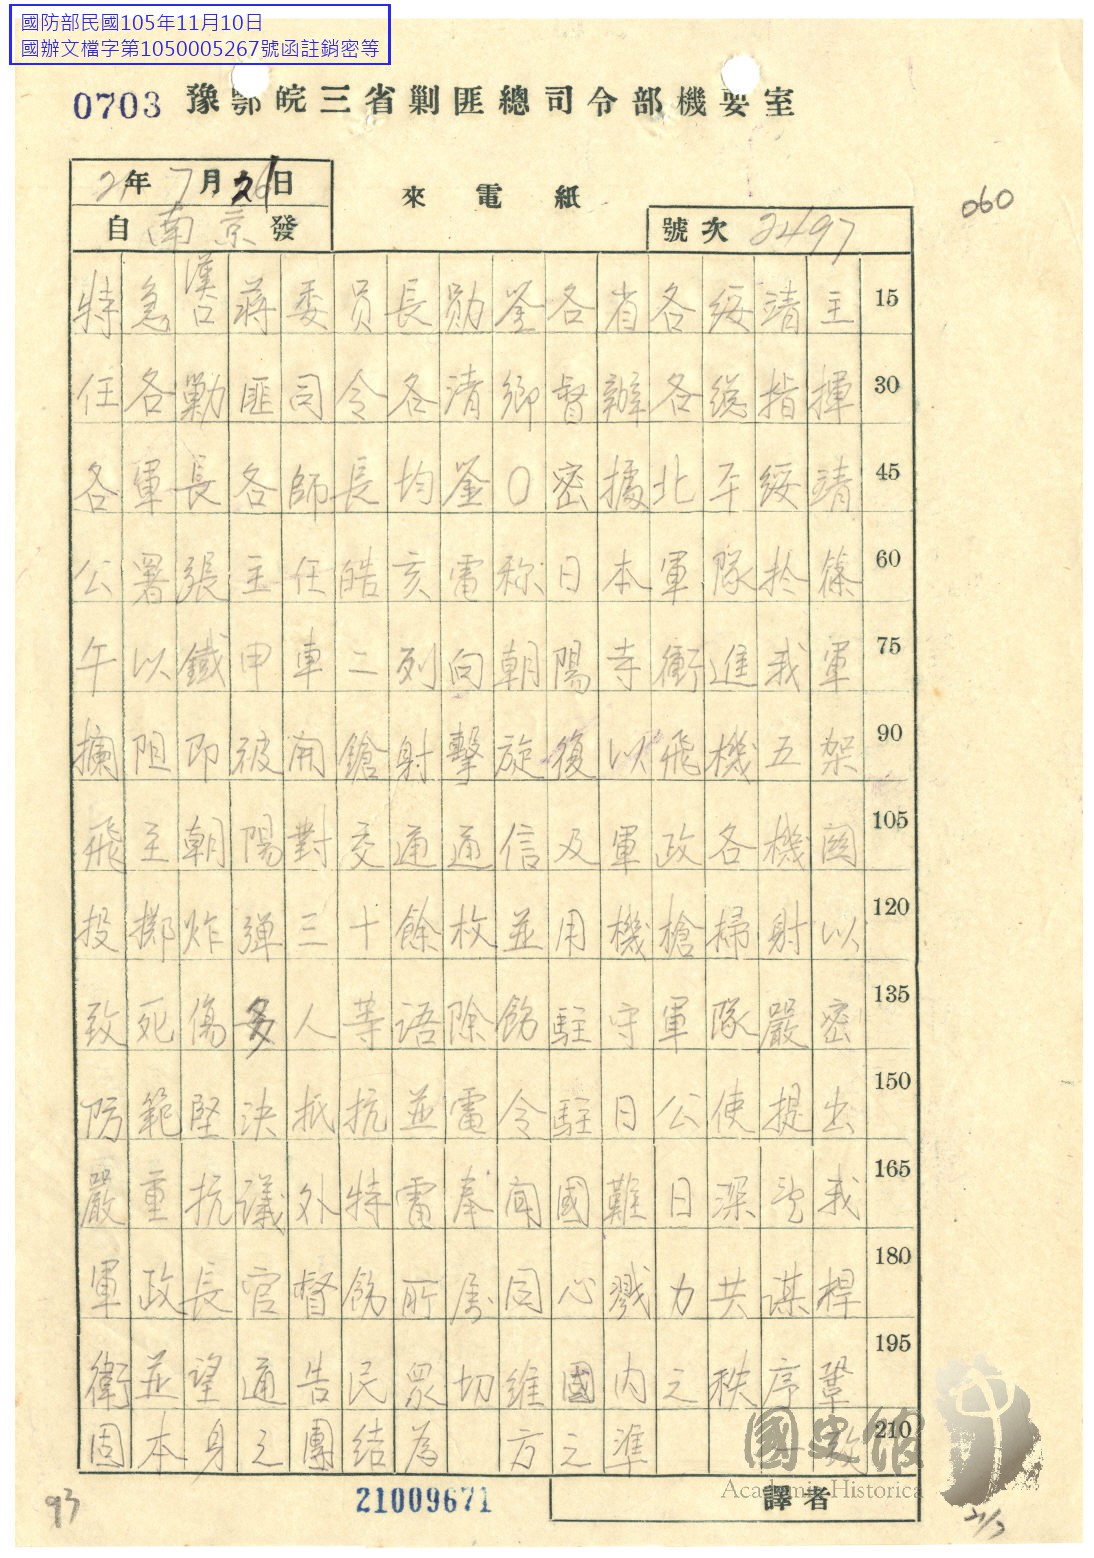 國防部民國105年11月10日
國辦文檔字第1050005267號函註銷密等
0703 豫鄂皖三省剿匪總司令部機要室
21年7月21日
來電紙
060
自南京發
號次 2497
特急漢口蔣委員長勛鑒各省各綏靖主 15
任各勦匪司令各清鄉督辦各總指揮 30
各軍長各師長均鑒○密據北平綏靖 45
公署張主任皓亥電称日本軍隊於篠 60
午以鐵甲車二列向朝陽寺衝進我軍 75
攔阻即被開鎗射擊旋復以飛機五架 90
飛至朝陽對交通通信及軍政各機関 105
投擲炸彈三十餘枚並用機槍掃射以 120
致死傷多人等语除飭駐守軍隊嚴密 135
防範堅決抵抗並電令駐日公使提出 150
嚴重抗議外特電奉聞國難日深望我 165
軍政長官督飭所属同心戮力共謀捍 180
衛並望通告民眾切維國内之秩序鞏 195
固本身之團結為方之準 210
國史館
Academia Historica
譯者
21009671
93